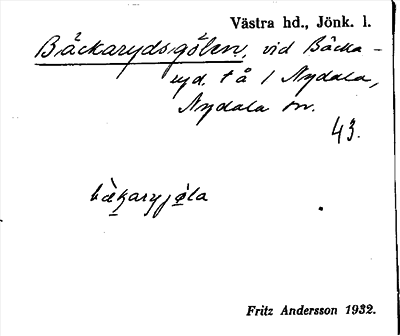 Västra hd., Jönk. l.
Bäckarydsgölen, vid Bäcka-
ryd. t å 1 Nydala,
Nydala sn.
43.
bækaryjøla
Fritz Andersson 1932.